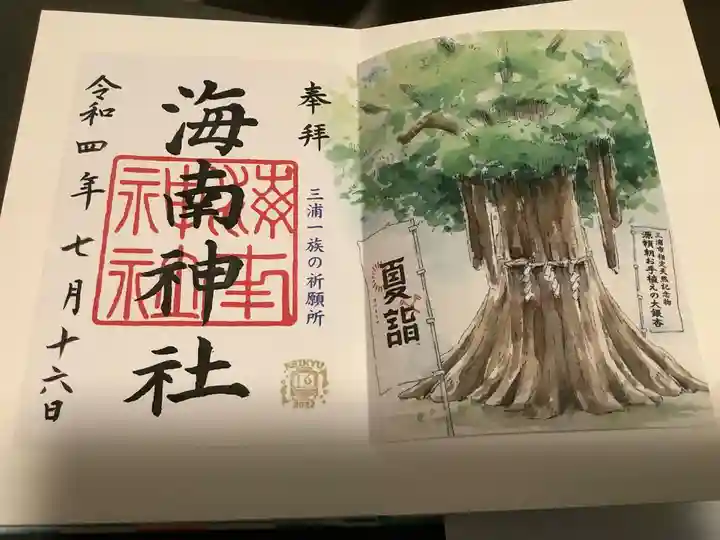 奉拝
三浦一族の祈願所
海南神社
海南神社
令和四年七月十六日
KEIKYU
2022
三浦市指定天然記念物
源頼朝お手植えの大銀杏
夏詣